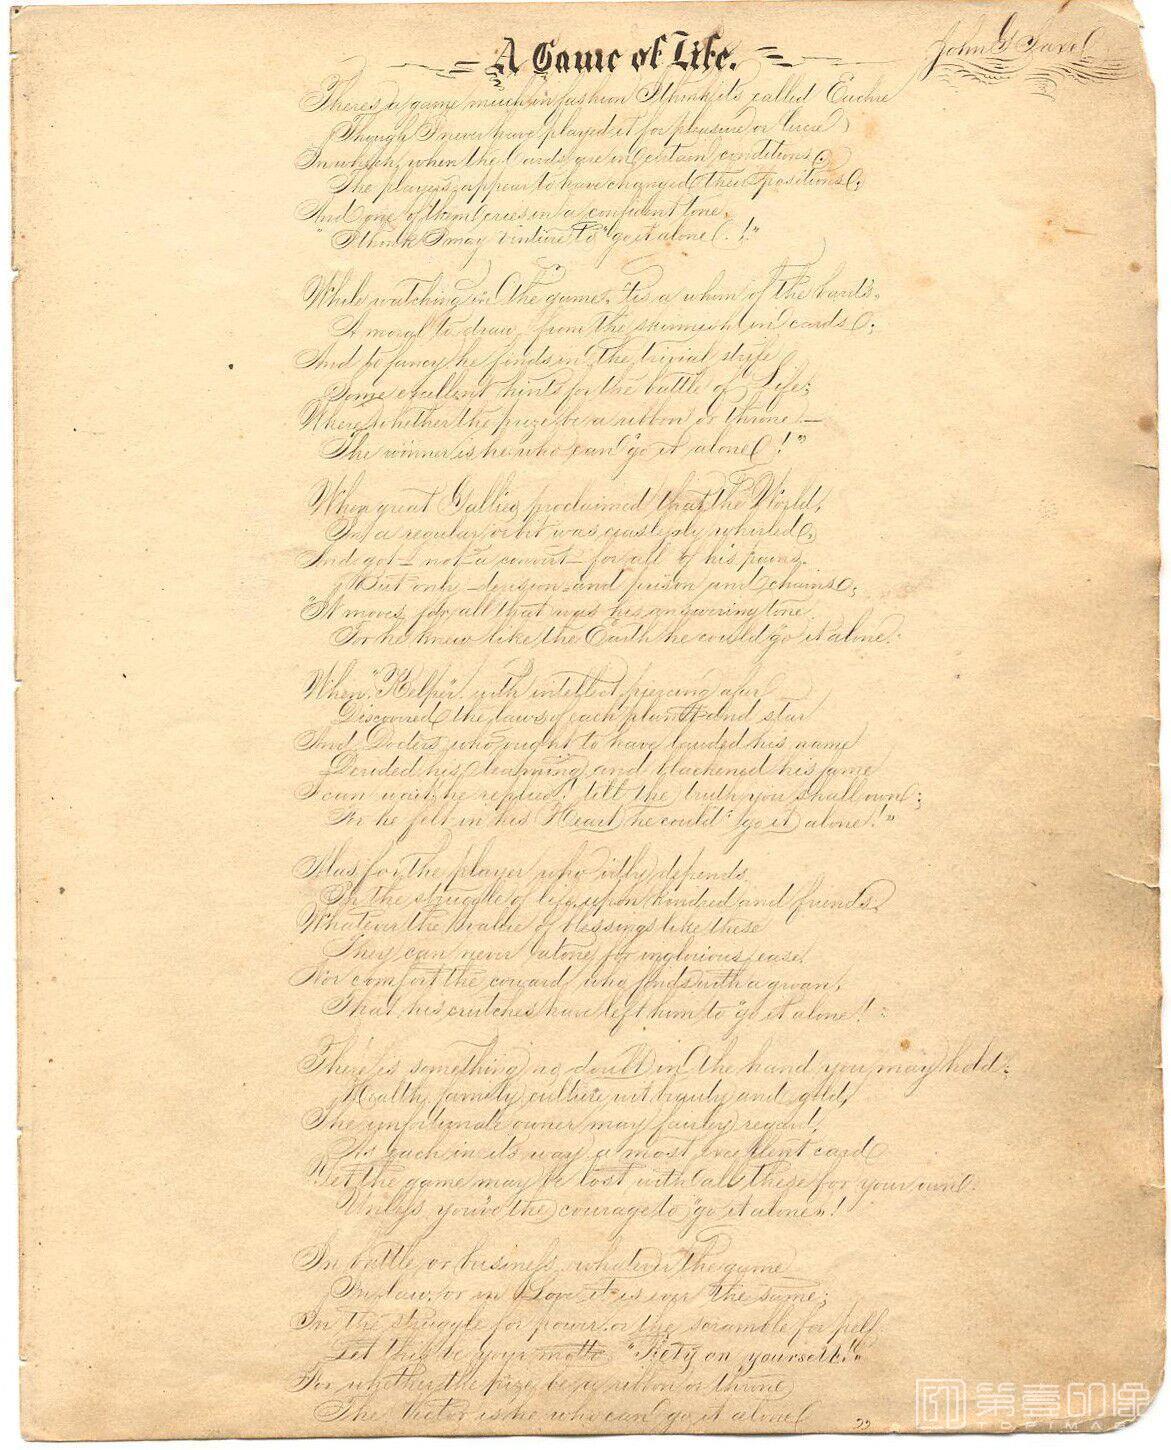 A Game of Life.
John G Saxe
There's a game much in fashion I think its called Euchre
(Though I never have played it for pleasure or lucre)
In which, when the Cards are in certain conditions,
The players appear to have changed their positions,
And one of them cries in a confident tone,
"I think I may venture to "go it alone!"
While watching the game, 'tis a whim of the bard's,
A moral to draw from the skirmish in cards,
And to fancy he finds in the trivial strife
Some excellent hints for the battle of Life;
Where whether the prize be a ribbon or throne—
The winner is he who can "go it alone!"
When great Gallieo proclaimed that the World,
In a regular orbit was ceaselessly whirled,
And got—not a convert—for all of his pains.
But only derision and prison and chains,
"It moves for all that was his answering tone
For he knew like the Earth he could "go it alone."
When "Kelper" with intellect piercing afar
Discovered the laws of each planet and star
And Doctors who ought to have lauded his name
Derided his learning and blackened his fame
I can wait he replied! till the truth you shall own;
For he felt in his Heart he could "go it alone!"
Alas for the player who idly depends,
In the struggle of life upon kindred and friends.
Whatever the value of blessings like these
They can never atone for inglorious ease.
Nor comfort the coward who finds with a groan,
That his crutches have left him to "go it alone!"
There is something no doubt in the hand you may hold:
Health, family culture wit beauty and gold,
The unfortunate owner may fairly regard,
As each in its way a most excellent card
Yet the game may be lost with all these for your own.
Unless you've the courage to "go it alone"!
In battle or business whatever the game
In law, or in Love it is ever the same;
In the struggle for power or the scramble for pelf
Let this be your motto "Rely on yourself!"
For whether the prize be a ribbon or throne
The victor is he who can "go it alone"
第壹印像
TOPIMAGE